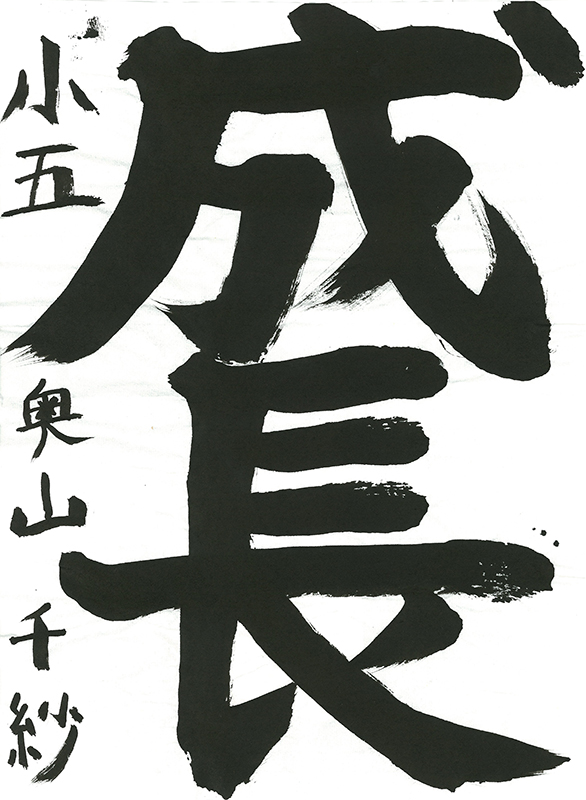 成長
小五 奥山千紗